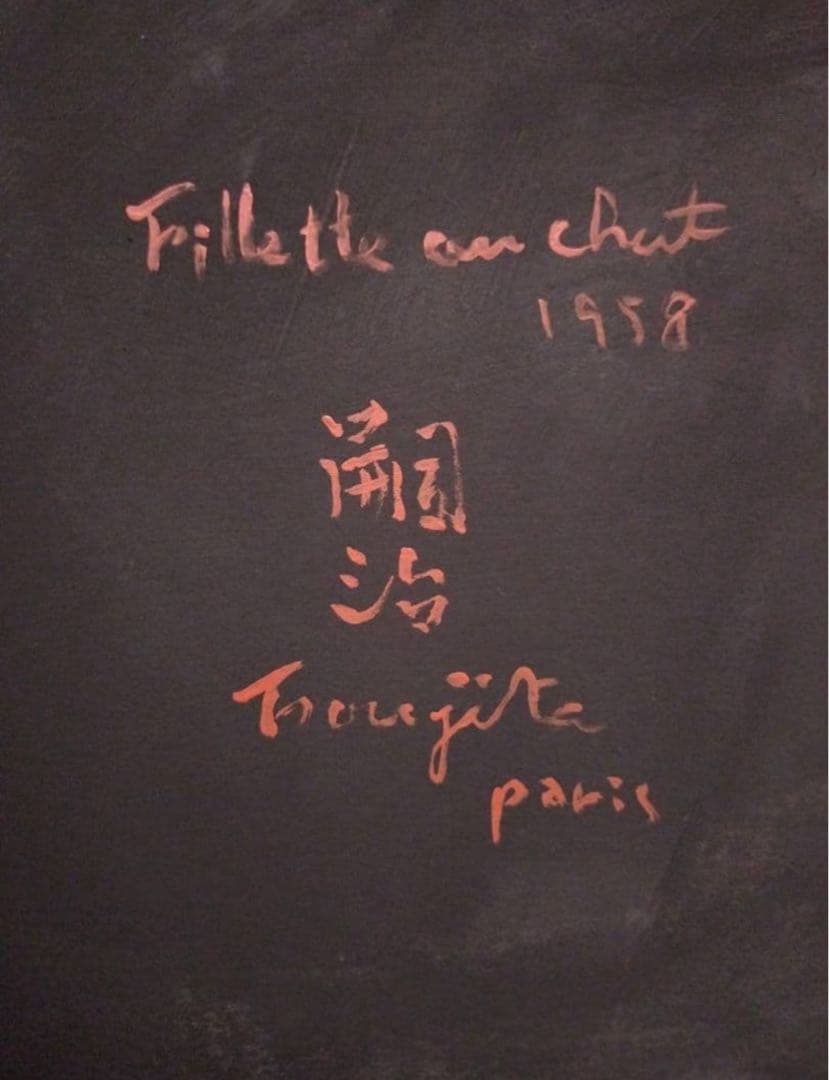 Fillette au chat
1958
嗣
治
Foujita
paris